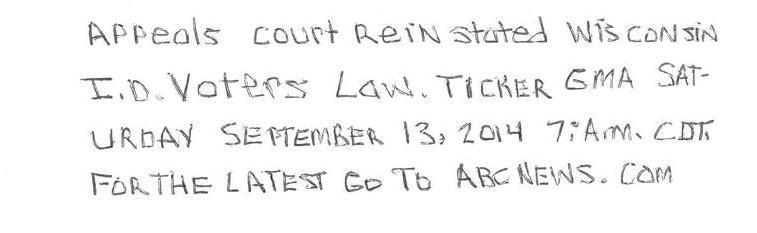 Appeals court ReiN stated Wis CON SiN
I.D. Voters Law. TICKER GMA SAT-
URDAY SEPTEMBER 13, 2014 7:A.m. CDT.
FOR THE LATEST GO TO ABC NEWS. COM